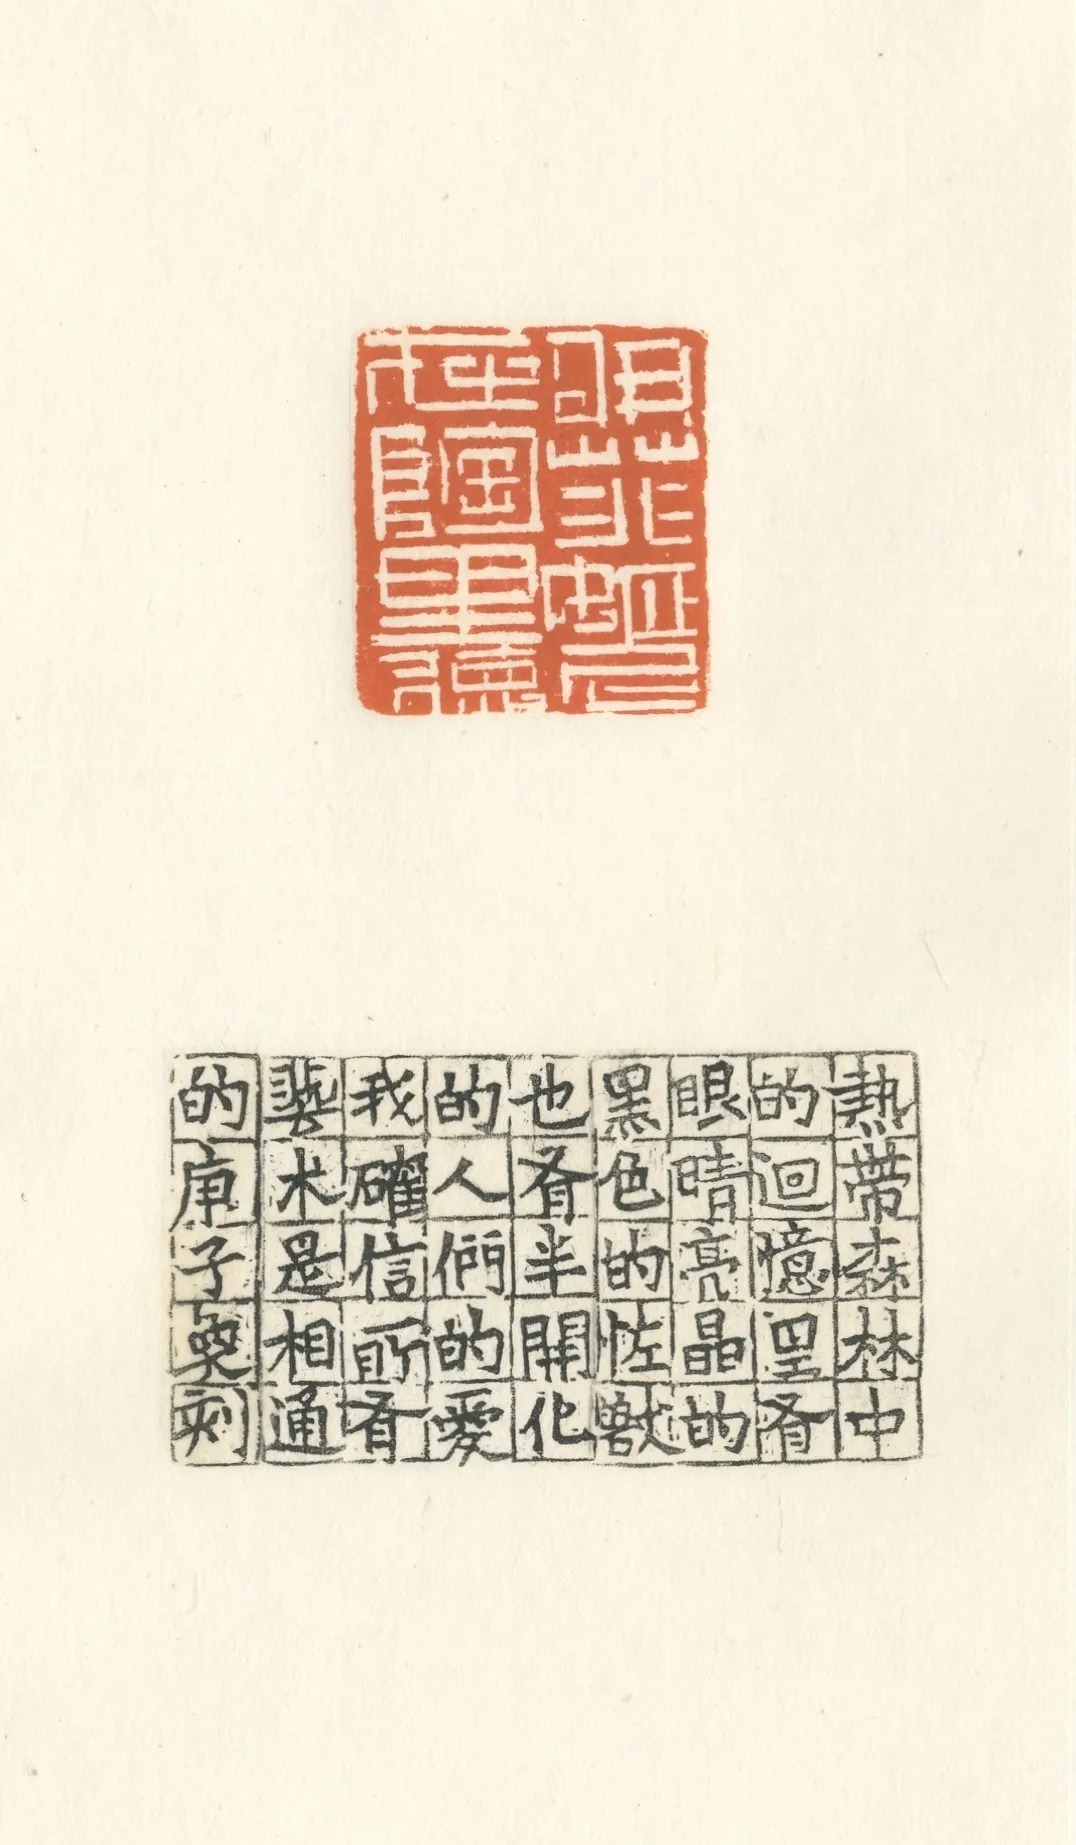 熱带森林中
的迴憶里有
眼睛亮晶的
黑色的怪獸
也有半開化
的人們的愛
我確信所有
藝术是相通
的庚子刻